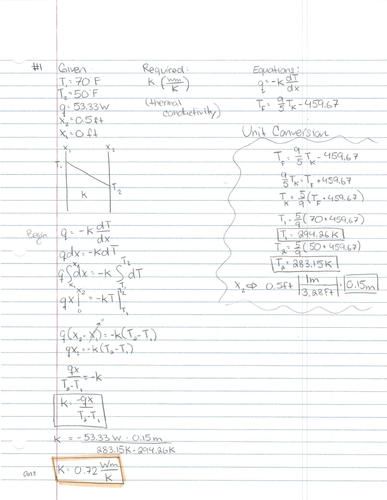 #1
Given
T₁ = 70°F
T₂ = 50°F
q = 53.33W
x₂ = 0.5ft
x₁ = 0 ft
Required:
K (wm/K)
(thermal
conductivity)
Equations:
q = -k dT/dx
T_F = 9/5 T_K - 459.67
Unit Conversion
T_F = 9/5 T_K - 459.67
9/5 T_K = T_F + 459.67
T_K = 5/9 (T_F + 459.67)
T₁ = 5/9 (70 + 459.67)
T₁ = 294.26K
T₂ = 5/9 (50 + 459.67)
T₂ = 283.15K
x₂ ⇔ 0.5ft | 1m / 3.28ft | = 0.15m
x₁ x₂
T₁
T₂
K
Begin
q = -k dT/dx
qdx = -kdT
q∫dx = -k∫dT
x₁ x₂ T₁ T₂
qx|₀^x₂ = -kT|_T₁^T₂
q(x₂ - x₁) = -k(T₂ - T₁)
qx₂ = -k(T₂ - T₁)
qx / T₂ - T₁ = -k
K = -qx / T₂ - T₁
K = -53.33W · 0.15m / 283.15K - 294.26K
ans
K = 0.72 Wm/K